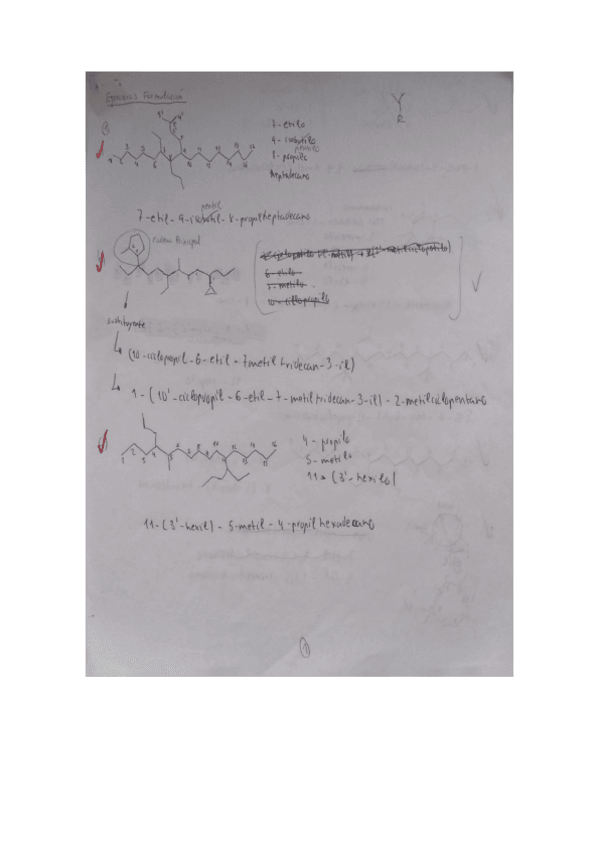 Ejercicios Formulación
R
7-etilo
9-isobutilo
pentilo
8-propilo
Heptadecano
pentil
7-etil-9-isobutil-8-propilheptadecano
cadena Principal
6-etilo
7-metilo
10-ciclopropilo
sustituyente
(10-ciclopropil-6-etil-7metil tridecan-3-il)
1-(10'-ciclopropil-6-etil-7-metil tridecan-3-il)-2-metilciclopentano
4-propilo
5-metilo
11-(3'-hexilo)
11-(3'-hexil)-5-metil-4-propil hexadecano
1